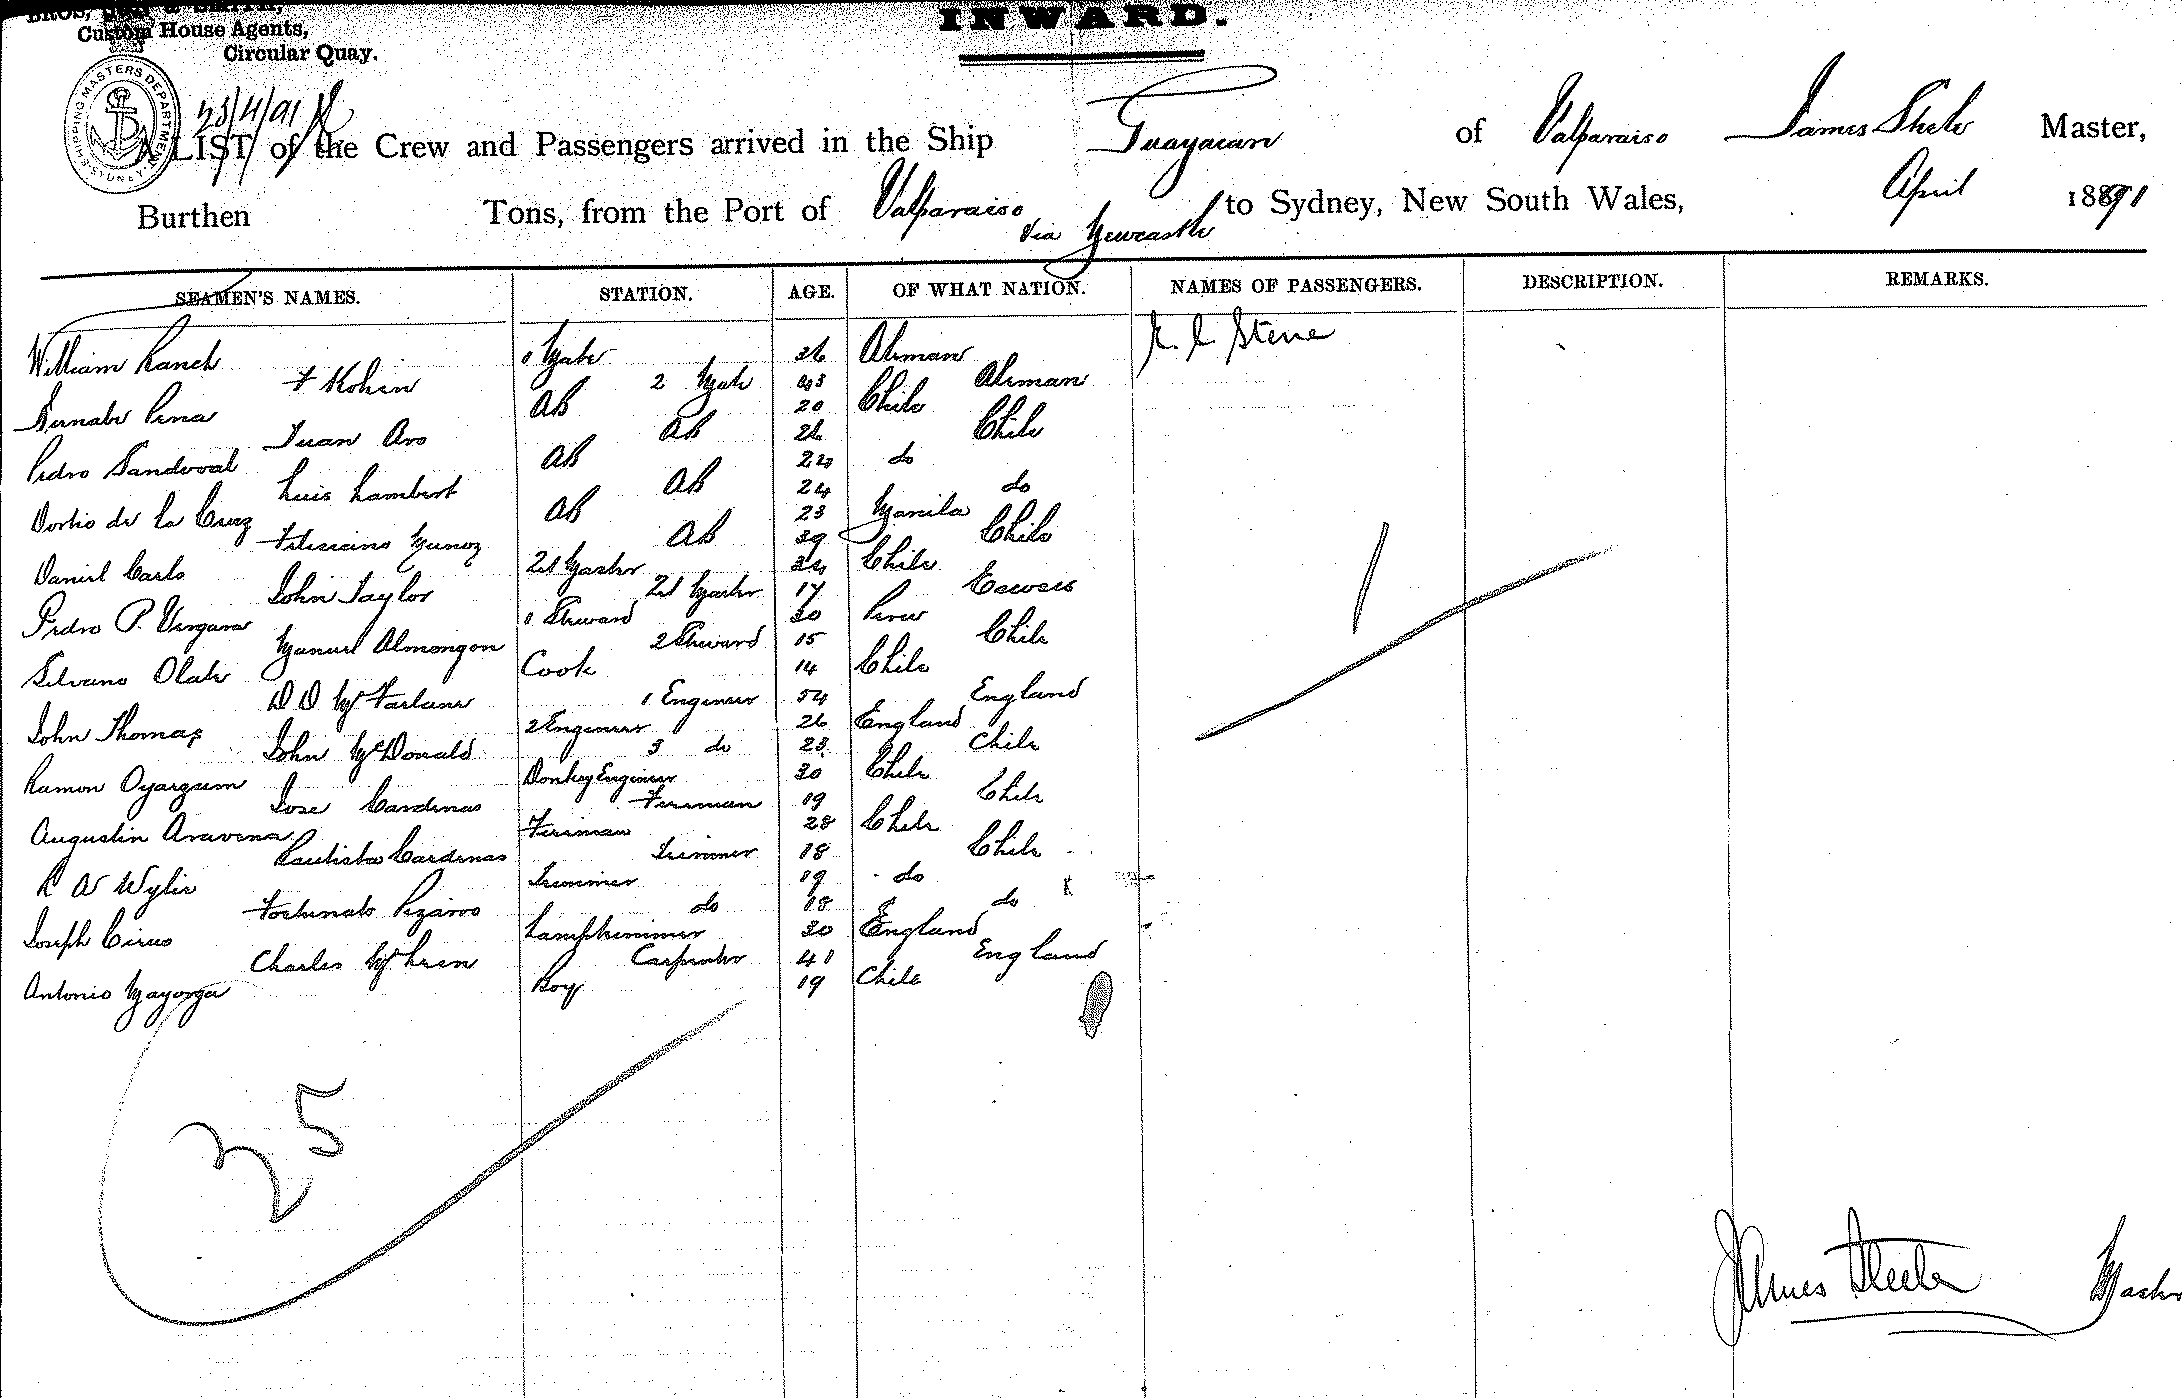 Custom House Agents,
Circular Quay.
INWARD.
SHIPPING MASTERS DEPARTMENT SYDNEY
23/4/91
A LIST of the Crew and Passengers arrived in the Ship Guayacan of Valparaiso James Steele Master,
Burthen Tons, from the Port of Valparaiso via Newcastle to Sydney, New South Wales, April 1891
SEAMEN'S NAMES. STATION. AGE. OF WHAT NATION. NAMES OF PASSENGERS. DESCRIPTION. REMARKS.
William Ranch 1 Mate 36 Aleman Stene
F Kohen 2 Mate 43 Aleman
Bernabe Pena AB 20 Chile
Juan Oro AB 26 Chile
Pedro Sandoval AB 24 do
Luis Lambert AB 24 do
de la Cruz AB 23 Manila
Feliciano Munoz AB 39 Chile
Daniel Carlo 2d Master 34 Chile
John Taylor 2d Master 17
Pedro P. Vergara 1 Steward 30 Peru
Manuel Almongon 2 Steward 15 Chile
Silvano Olate Cook 14 Chile
D D McFarlane 1 Engineer 54 England
John Thomas 2 Engineer 26 England
John McDonald 3 do 23 Chile
Ramon Oyarzum Donkey Engineer 30 Chile
Jose Cardenas Fireman 19 Chile
Augustin Aravena Fireman 28 Chile
Bautista Cardenas Trimmer 18 Chile
R W Wylie Trimmer 19 do
Fortunato Pizarro do 18 do
Joseph Lamptrimmer 30 England
Charles Carpenter 41 England
Antonio Mayorga Boy 19 Chile
1
25
James Steele Master